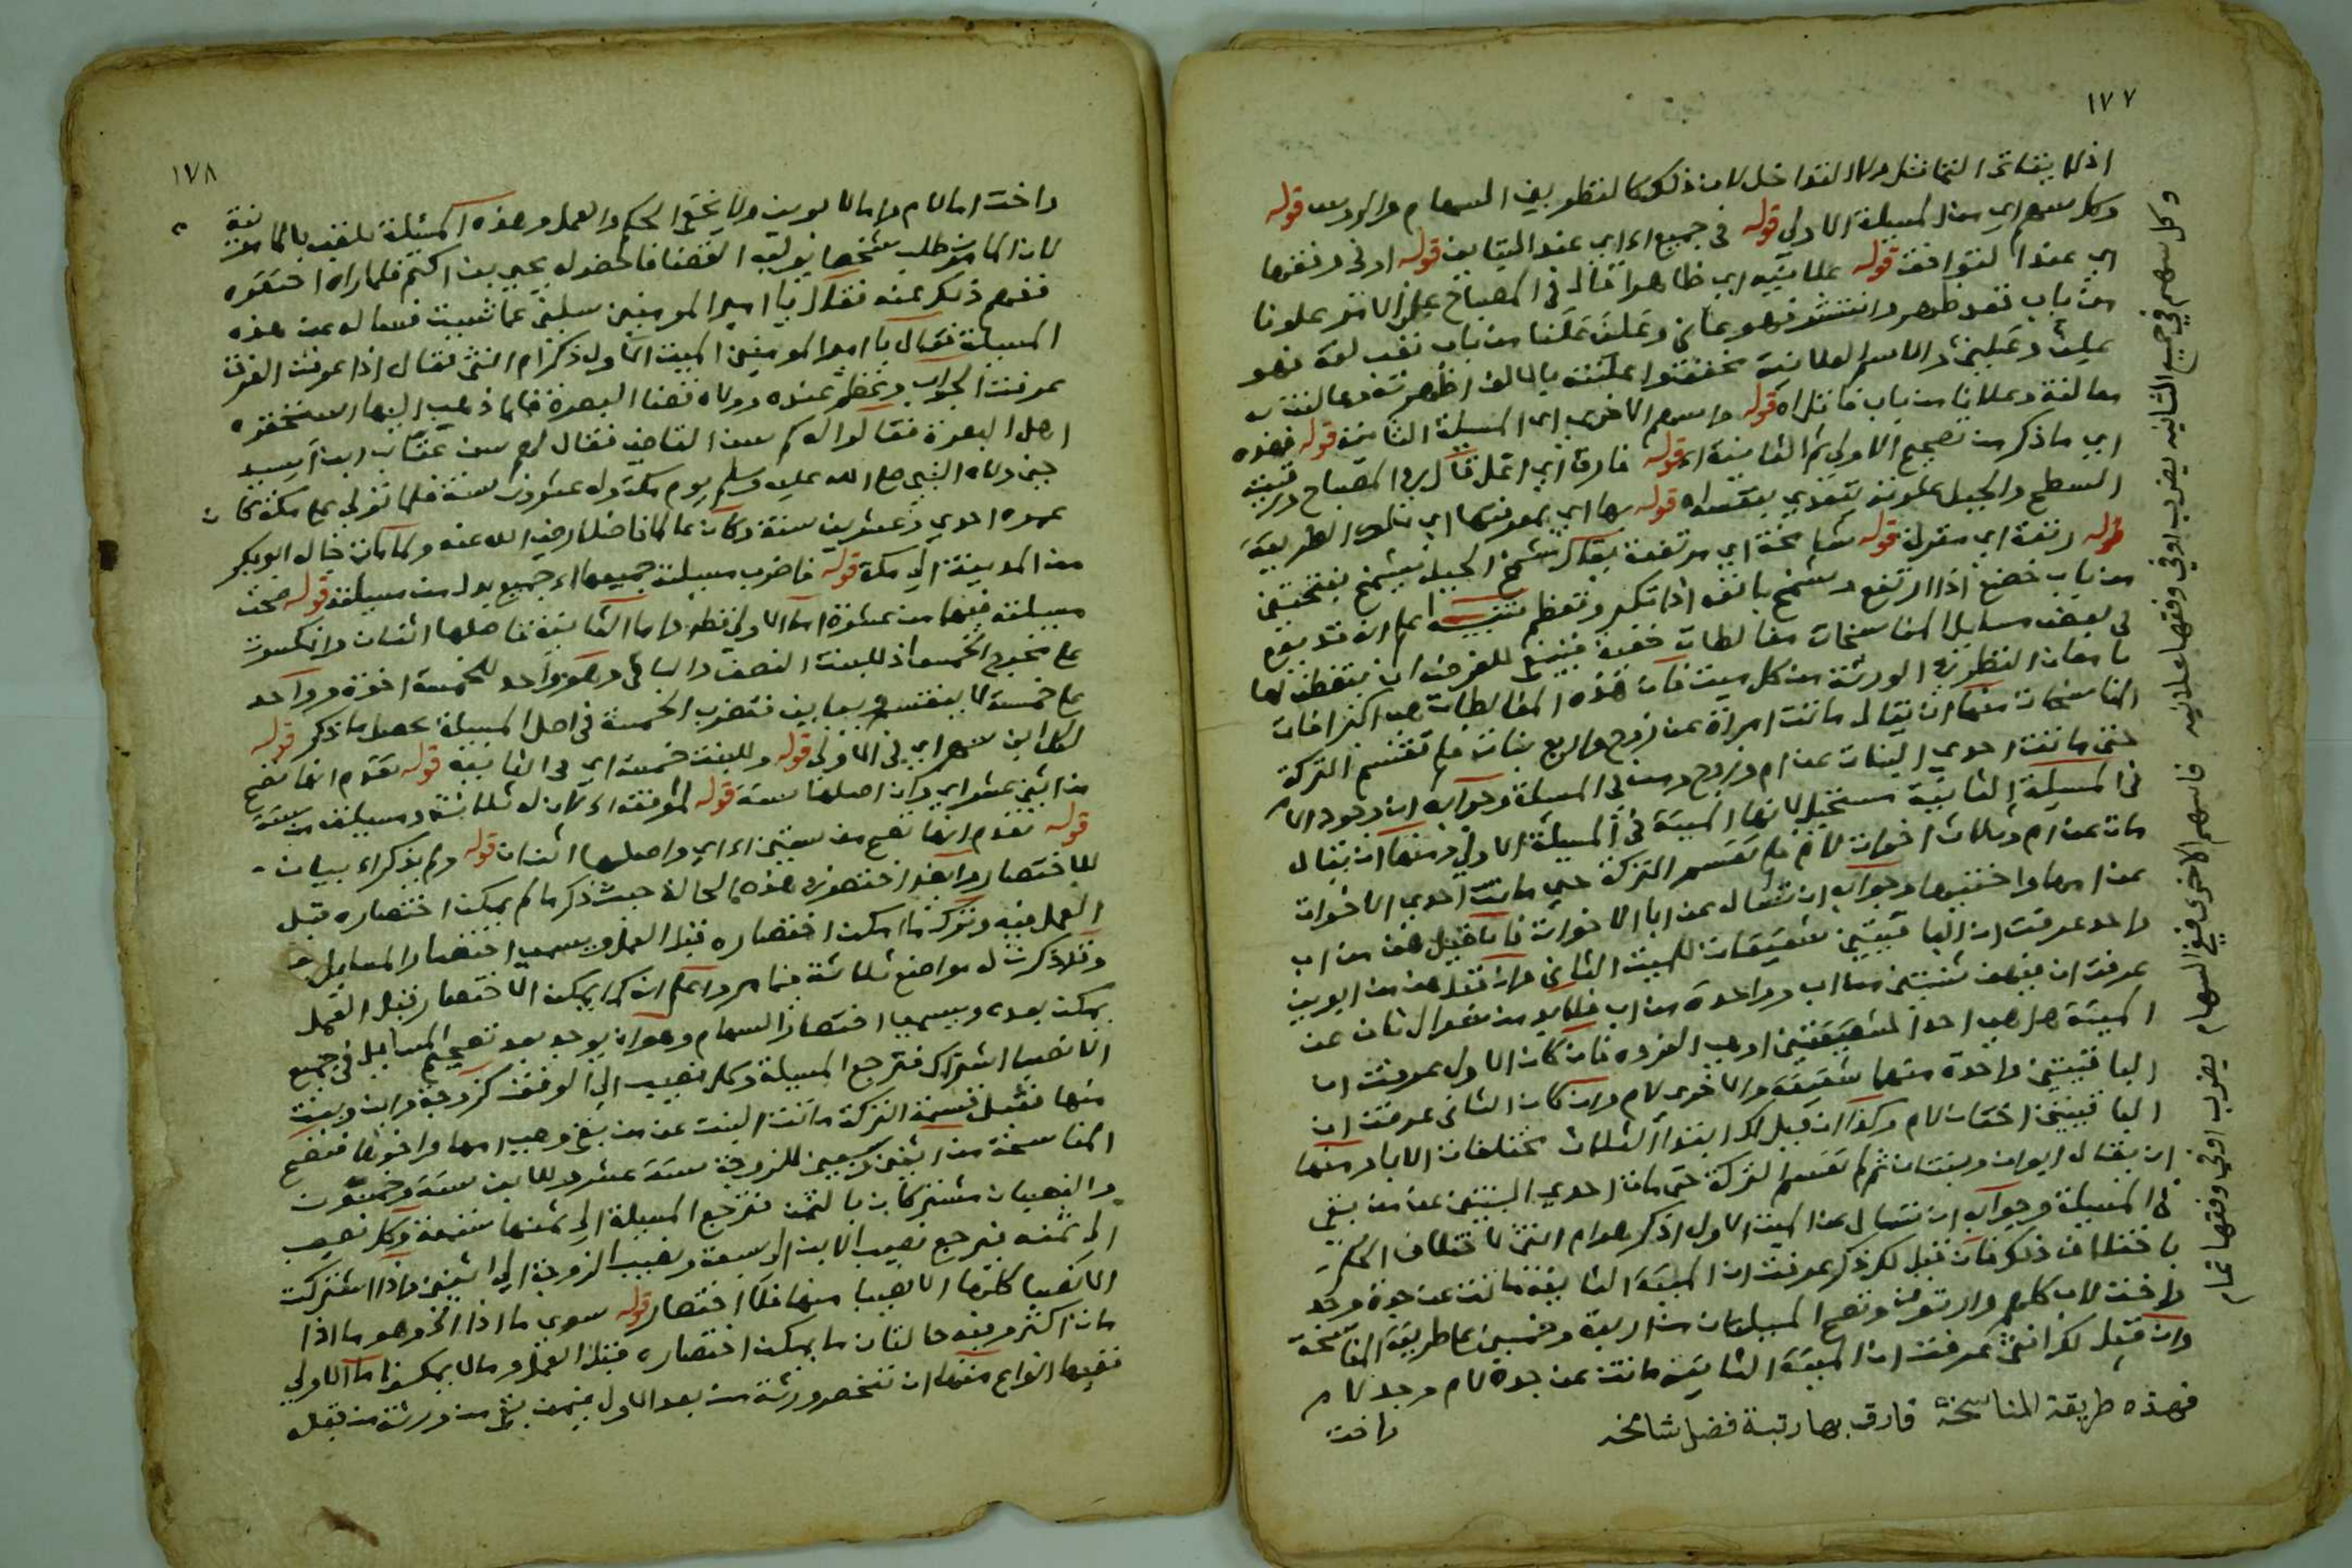 ١٧٧
اذ لا يتاتى التماثل ولا التداخل لان ذلك كالنظر بين السهام والرؤس قوله
وكل سهم اي من المسيلة الاولى قوله في جميع اه اي عند التباين قوله او في وفقها
اي عند التوافق قوله علانيه اي ظاهرا قال في المصباح علن الامر علونا
من باب قعد ظهر وانتشر فهو عالن وعلن علنا من باب تعب لغة فهو
علن وعلين والاسم العلانية مخففتو اعلنته بالالف اظهرته وعالنت به
معالنة وعلانا من باب قاتل اه قوله واسهم الاخرى اي المسيلة الثانية قوله فهذه
اي ما ذكر من تصحيح الاولى ثم الثانية اه قوله فارق اي اعل قال في المصباح رقيت
السطح والجبل علوته يتعدى بنفسه اه قوله بها اي بمعرفتها اي بتلك الطريقة
قوله رتبة اي منزلة قوله شامخة اي مرتفعة يقال شمخ الجبل يشمخ بفتحتين
من باب خضع اذا ارتفع وشمخ بانفه اذا تكبر وتعظم تنبيه اعلم انه قد يقع
في بعض مسايل المناسخات مغالطات خفية فينبغي للفرضي ان يتفطن لها
بامعان النظر في الورثة من كل ميت فان هذه المغالطات هي اكثر افات
المناسخات منها ان يقال ماتت امراة عن زوج واربع بنات فلم تقتسم التركة
حتى ماتت احدى البنات عن ام وزوج ومن في المسيلة وجوابه ان وجود الام
في المسيلة الثانية مستحيل لانها الميتة في المسيلة الاولى ومنها ان يقال
مات عن ام وثلاث اخوات لام فلم تقسم التركة حتى ماتت احدى الاخوات
عن امها واختيها وجوابه ان تسال عن ابا الاخوات فان قيل هن من اب
واحد عرفت ان الباقيتين شقيقات للميت الثاني وان قيل هن من ابوين
عرفت ان فيهن ثنتين من اب وواحدة من اب فلا بد من سوال ثان عن
الميتة هل هي احد الشقيقتين او هي المفردة فان كان الاول عرفت ان
الباقيتين واحدة منهما شقيقة والاخرى لام وان كان الثاني عرفت ان
الباقيتين اختان لام وكذا ان قيل لك ابنتوا الثلاث مختلفات الابا ومنها
ان يقال ابوان وبنتان ثم لم تقسم التركة حتى مات احدى البنتين عن من بقي
في المسيلة وجوابه ان تسال عن الميت الاول اذكر هو ام انثى لاختلاف الحكم
باختلاف ذلك فان قيل لك ذكر عرفت ان الميتة الثانية ماتت عن جدة وجد
واخت لاب كلهم وارثون وتصح المسيلتان من اربعة وخمسين على طريقة المناسخة
وان قيل لك انثى عرفت ان الميتة الثانية ماتت عن جدة لام وجد لام
واخت
فهذه طريقة المناسخة فارق بها رتبة فضل شامخة
وكل سهم في جميع الثانيه يضرب او في وفقها علانيه
فاسهم الاخرى ففي السهام يضرب او في وفقها تمام
١٧٨
واخت اما لام واما لابوين ولا يخفى الحكم والعمل وهذه المسئلة تلقب بالمامونية
لان المامون طلب شخصا يوليه القضا فاحضر له يحيى بن اكثم فلما راه احتقره
ففهم ذلك عنه فقال يا امير المومنين سلني عما شيت فساله عن هذه
المسيلة فقال يا امير المومنين الميت الاول ذكر ام انثى فقال اذا عرفت الفرق
عرفت الجواب وعظم عنده وولاه قضا البصرة فلما ذهب اليها استحقره
اهل البصرة فقالوا له كم سن القاضي فقال لهم سن عتاب ابن اسيد
حين ولاه النبي صلى الله عليه وسلم يوم مكة وله عشرون سنة فلما تولى على مكة كان
عمره احدى وعشرين سنة وكان عالما فاضلا رضي الله عنه ولما كان خال ابو بكر
من المدينة الى مكة قوله فاضرب مسيلته جميعها اه جميع بدل من مسيلته قوله صحت
مسيلته فيها من عشرة اما الاولى فظهر واما الثانية فاصلها اثنان وانكسرت
على مخرج الخمس اذ للبنت النصف والباقي وهو واحد للخمسة اخوة وواحد
على خمسة لا ينقسم ويباين فتضرب الخمسة في اصل المسيلة يحصل ما ذكر قوله
لكل ابن سهم اي في الاولى قوله وللبنت خمسة اي في الثانية قوله تقدم انها تصح
من اثني عشر اي وان اصلها ستة قوله الموفقة اه لان له ثلاثة ومسيلته من ستة
قوله تقدم انها تصح من ستين اه اي واصلها اثنان قوله ولم يذكر اه بيان
للاختصار وايضا اختصر في هذه الحالة حيث ذكر ما لم يمكن اختصاره قبل
العمل فيه وترك ما امكن اختصاره قبل العمل ويسمى اختصار المسايل
وقد ذكرت له مواضع ثلاثة فيما مر واعلم انه كما يمكن الاختصار قبل العمل
يمكن بعده ويسمى اختصار السهام وهو ان يوجد بعد تصحيح المسايل في جميع
الانصبا اشتراك فترجع المسيلة وكل نصيب الى الوفق كزوجة وابن وبنت
منها فقبل قسمة التركة ماتت البنت عن من بقي وهي امها واخوها فتصح
المناسخة من اثنين وسبعين للزوجة ستة عشر وللابن ستة وخمسون
والنصيبان مشتركان بالثمن فترجع المسيلة الى ثمنها تسعة وكل نصيب
الى ثمنه فيرجع نصيب الابن الى سبعة ونصيب الزوجة الى اثنين فاذا اشتركت
الانصبا كلها الا نصيبا منها فلا اختصار قوله سوى ما اذا الخ وهو ما اذا
مات اكثر وفيه حالتان ما يمكن اختصاره قبل العمل وما لا يمكن فاما الاولى
ففيها انواع منها ان تنحصر ورثة من بعد الاول فيمن بقي من ورثة من قبله